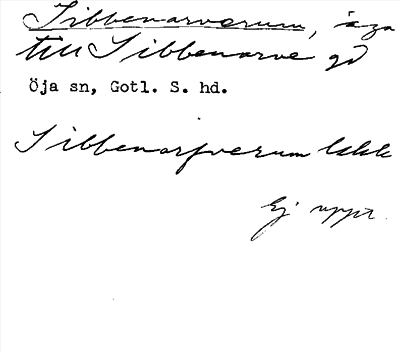 Sibbenarverum, äga
till Sibbenarve gd
Öja sn, Gotl. S. hd.
Sibbenarfverum
Ej uppt.